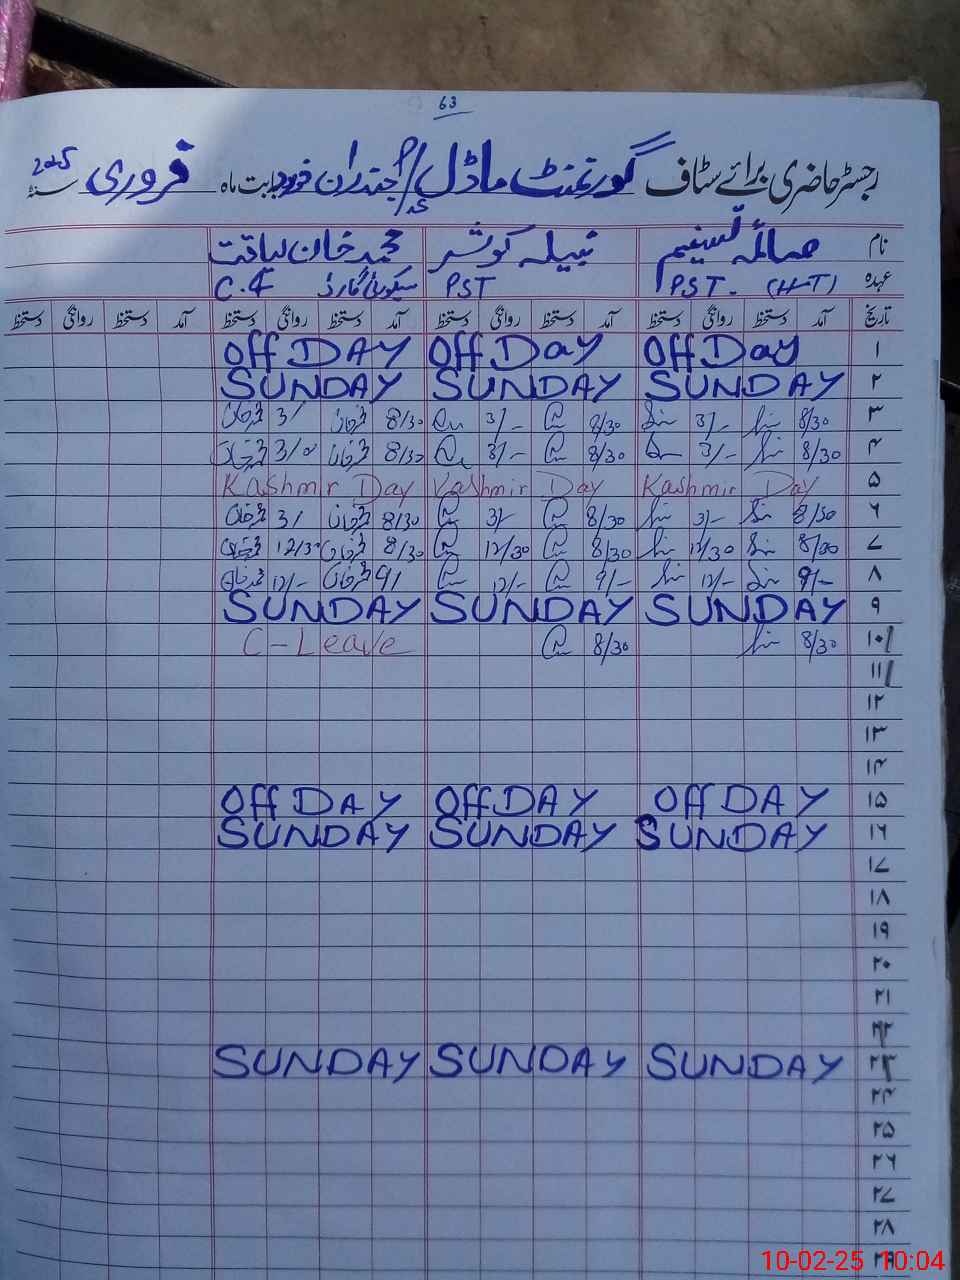 63
رجسٹر حاضری برائے سٹاف گورنمنٹ ماڈل پ/س جندران خورد بابت ماہ فروری سنۂ 2025
نام صائمہ تسنیم نبیلہ کوثر محمد خان لیاقت
عہدہ PST. (H-T) PST سیکورٹی گارڈ C.4
تاریخ آمد دستخط روانگی دستخط آمد دستخط روانگی دستخط آمد دستخط روانگی دستخط آمد دستخط روانگی دستخط
۱ Off Day Off Day Off DAY
۲ SUNDAY SUNDAY SUNDAY
۳ 8/30 3/- 8/30 3/- 8/30 3/
۴ 8/30 3/- 8/30 3/- 8/30 3/0
۵ Kashmir Day Kashmir Day Kashmir Day
۶ 8/30 3/- 8/30 3/- 8/30 3/
۷ 8/30 12/30 8/30 12/30 8/30 12/30
۸ 9/- 12/- 9/- 12/- 9/ 12/-
۹ SUNDAY SUNDAY SUNDAY
۱۰ 8/30 8/30 C-Leave
۱۱
۱۲
۱۳
۱۴
۱۵ Off DAY Off DAY Off DAY
۱۶ SUNDAY SUNDAY SUNDAY
۱۷
۱۸
۱۹
۲۰
۲۱
۲۲
۲۳ SUNDAY SUNDAY SUNDAY
۲۴
۲۵
۲۶
۲۷
۲۸
۲۹
10-02-25 10:04